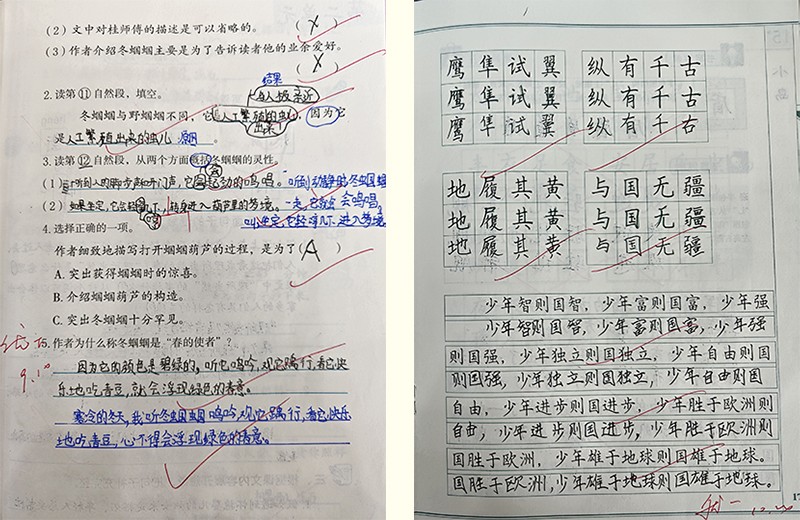 (2) 文中对桂师傅的描述是可以省略的。 (X)
(3) 作者介绍冬蝈蝈主要是为了告诉读者他的业余爱好。
(X)
结果
2. 读第⑪自然段，填空。
与人极亲近
冬蝈蝈与野蝈蝈不同，它是人工繁殖的虫儿，因为它
出来
是人工繁殖出来的虫儿 原因
3. 读第⑫自然段，从两个方面概括冬蝈蝈的灵性。
4. 选择正确的一项。
作者细致地描写打开蝈蝈葫芦的过程，是为了(A)
A. 突出获得蝈蝈时的惊喜。
B. 介绍蝈蝈葫芦的构造。
C. 突出冬蝈蝈十分罕见。
5. 作者为什么称冬蝈蝈是“春的使者”？
9.10
因为它的颜色是碧绿的，听它鸣吟，观它踽行，看它快
乐地吃青豆，就会浮现绿色的春意。
寒冷的冬天，我听冬虫国虫国鸣吟，观它踽行，看它快乐
地吃青豆，心不得会浮现绿色的春意。
鹰隼试翼 纵有千古
鹰隼试翼 纵有千古
鹰隼试翼 纵有千古
地履其黄 与国无疆
地履其黄 与国无疆
地履其黄 与国无疆
少年智则国智，少年富则国富，少年强
少年智则国智，少年富则国富，少年强
则国强，少年独立则国独立，少年自由则国
则国强，少年独立则国独立，少年自由则国
自由，少年进步则国进步，少年胜于欧洲则
自由，少年进步则国进步，少年胜于欧洲则
国胜于欧洲，少年雄于地球则国雄于地球。
国胜于欧洲，少年雄于地球则国雄于地球。
17